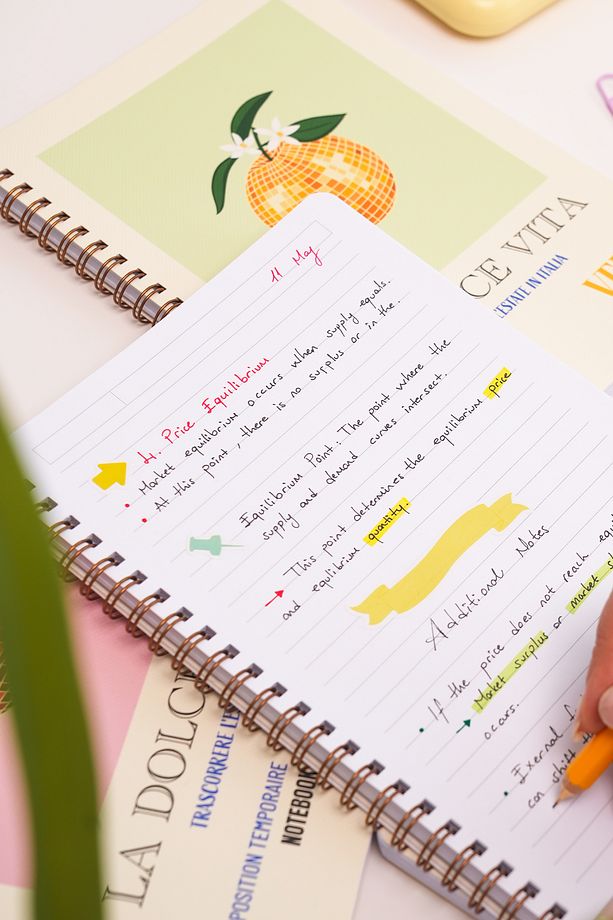 CE VITA
L'ESTATE IN ITALIA
11 May
4. Price Equilibrium
• Market equilibrium occurs when supply equals.
• At this point, there is no surplus or in the.
Equilibrium Point: The point where the
supply and demand curves intersect.
→ This point determines the equilibrium price
and equilibrium quantity.
Additional Notes
• If the price does not reach
→ Market surplus or market
occurs.
• Exernal
can shift
LA DOLCE
TRASCORRERE L'E
POSITION TEMPORAIRE
NOTEBOOK